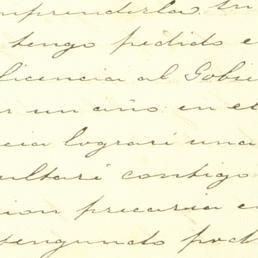 mprenderla. Su
tengo pedido e
licencia al Gobie
r un año en el
cia lograri una
ultari contigo
ion precaria e
tengundo pod